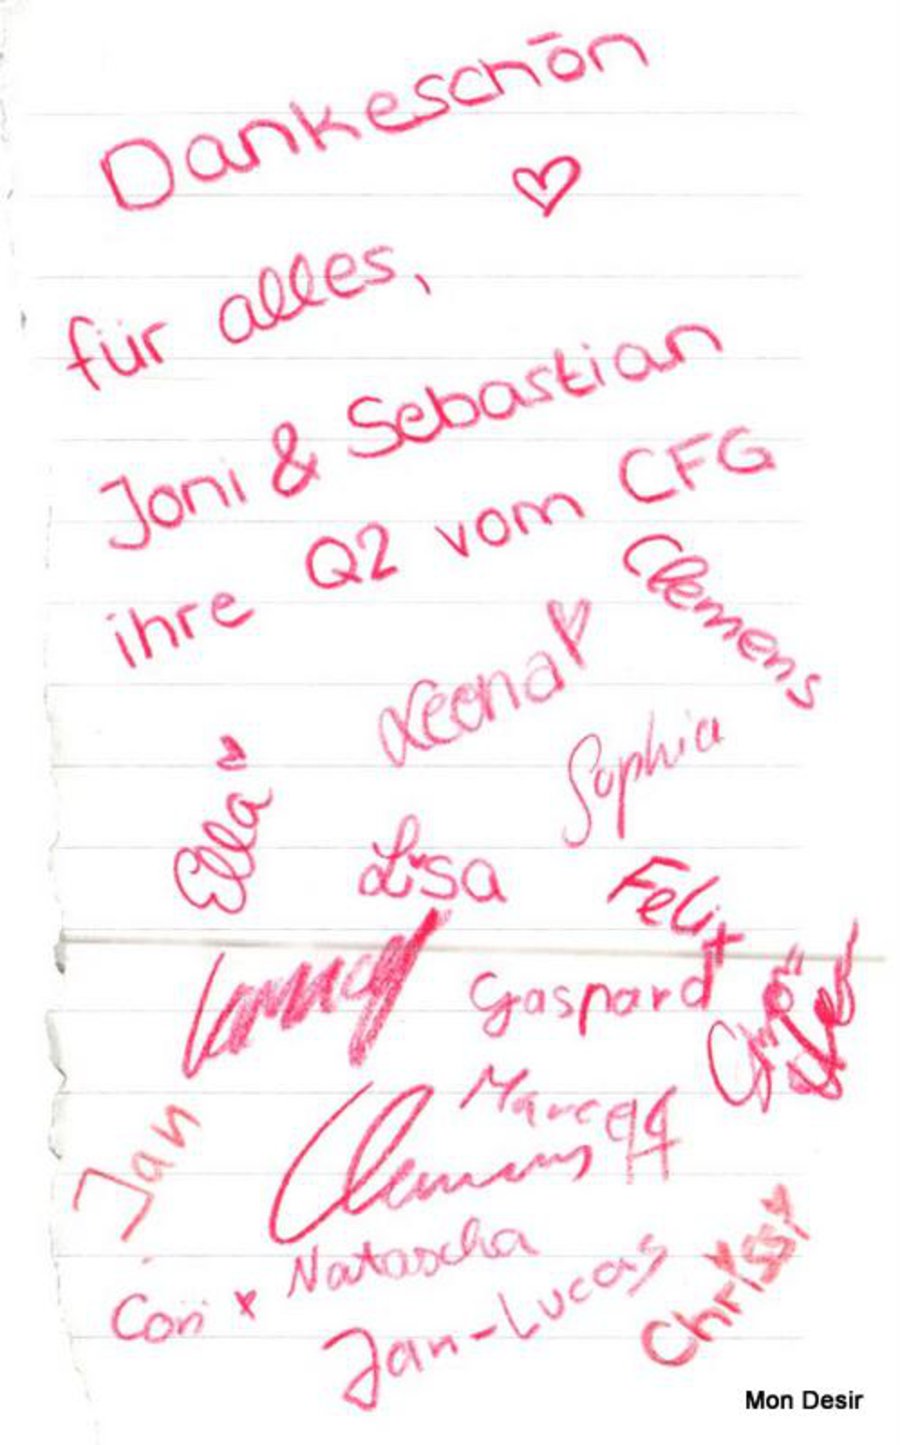 Dankeschön
für alles,
Joni & Sebastian
ihre Q2 vom CFG
Clemens
Leona
Sophia
Ella
Lisa
Felix
Gaspard
Marc
Jan
Clemens
Natascha
Cori x
Jan-Lucas
Chrissy
Mon Desir